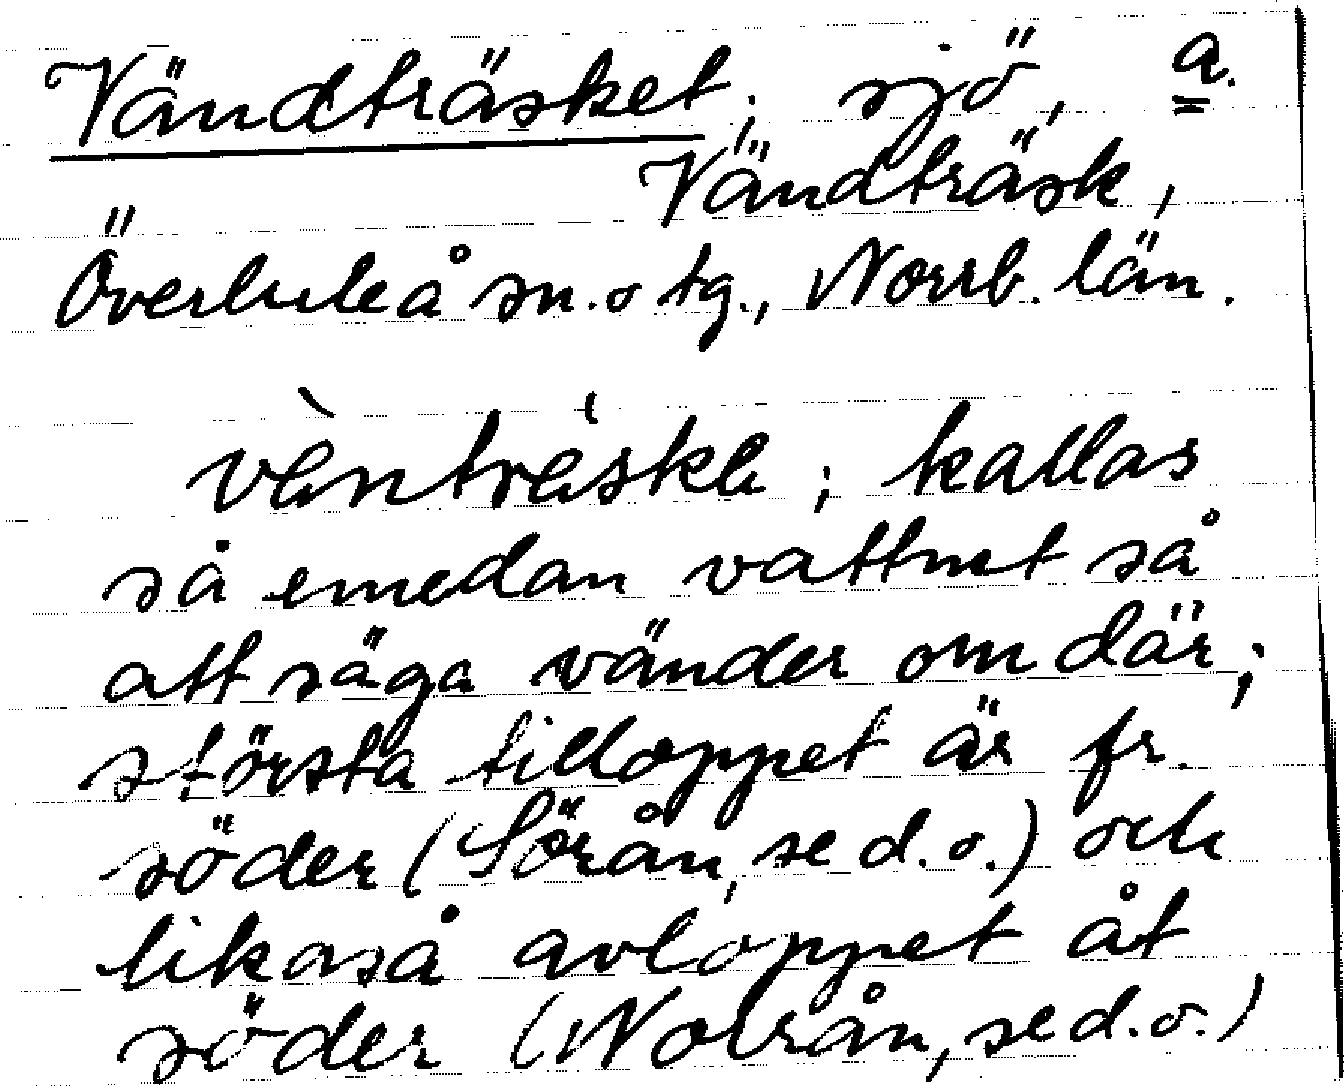 Vändträsket; sjö, a.
Vändträsk,
Överluleå sn. o tg., Norrb. län.
vènträ́skɛ; kallas
så emedan vattnet så
att säga vänder om där;
största tilloppet är fr.
söder (Sörån, se d. o.) och
likaså avloppet åt
söder (Norån, se d. o.)